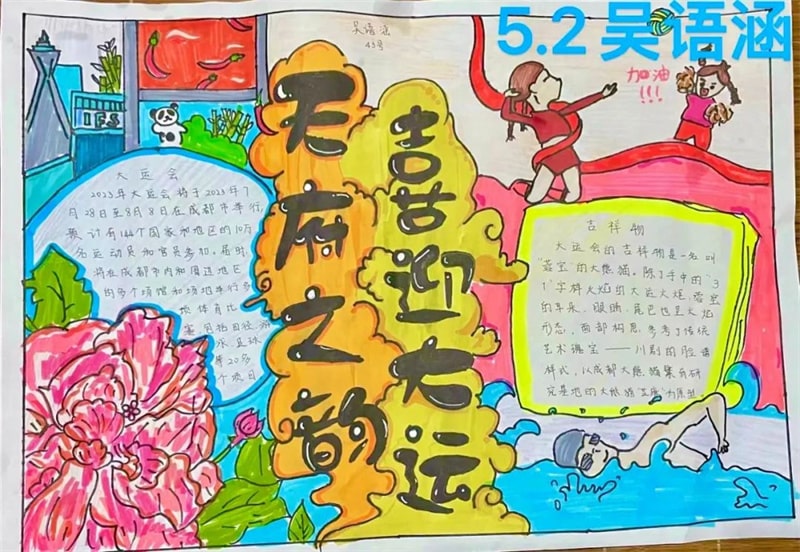 5.2吴语涵
吴语涵
43号
加油
!!!
IFS
天府之韵
喜迎大运
大运会
2023年大运会将于2023年7
月28日至8月8日在成都市举行,
预计有144个国家和地区的10万
名运动员和官员参加。届时
将在成都市内和周边地区
的多个场馆和场地举行多
项体育比
赛,包括田径、游
泳、篮球
等20多
个项目
吉祥物
大运会的吉祥物是一名叫
“蓉宝”的大熊猫。除了手中的“3
1”字样火焰的大运火炬,蓉宝
的耳朵、眼睛、尾巴也呈火焰
形态,面部构思参考了传统
艺术瑰宝——川剧的脸谱
样式,以成都大熊猫繁育研
究基地的大熊猫“芝麻”为原型